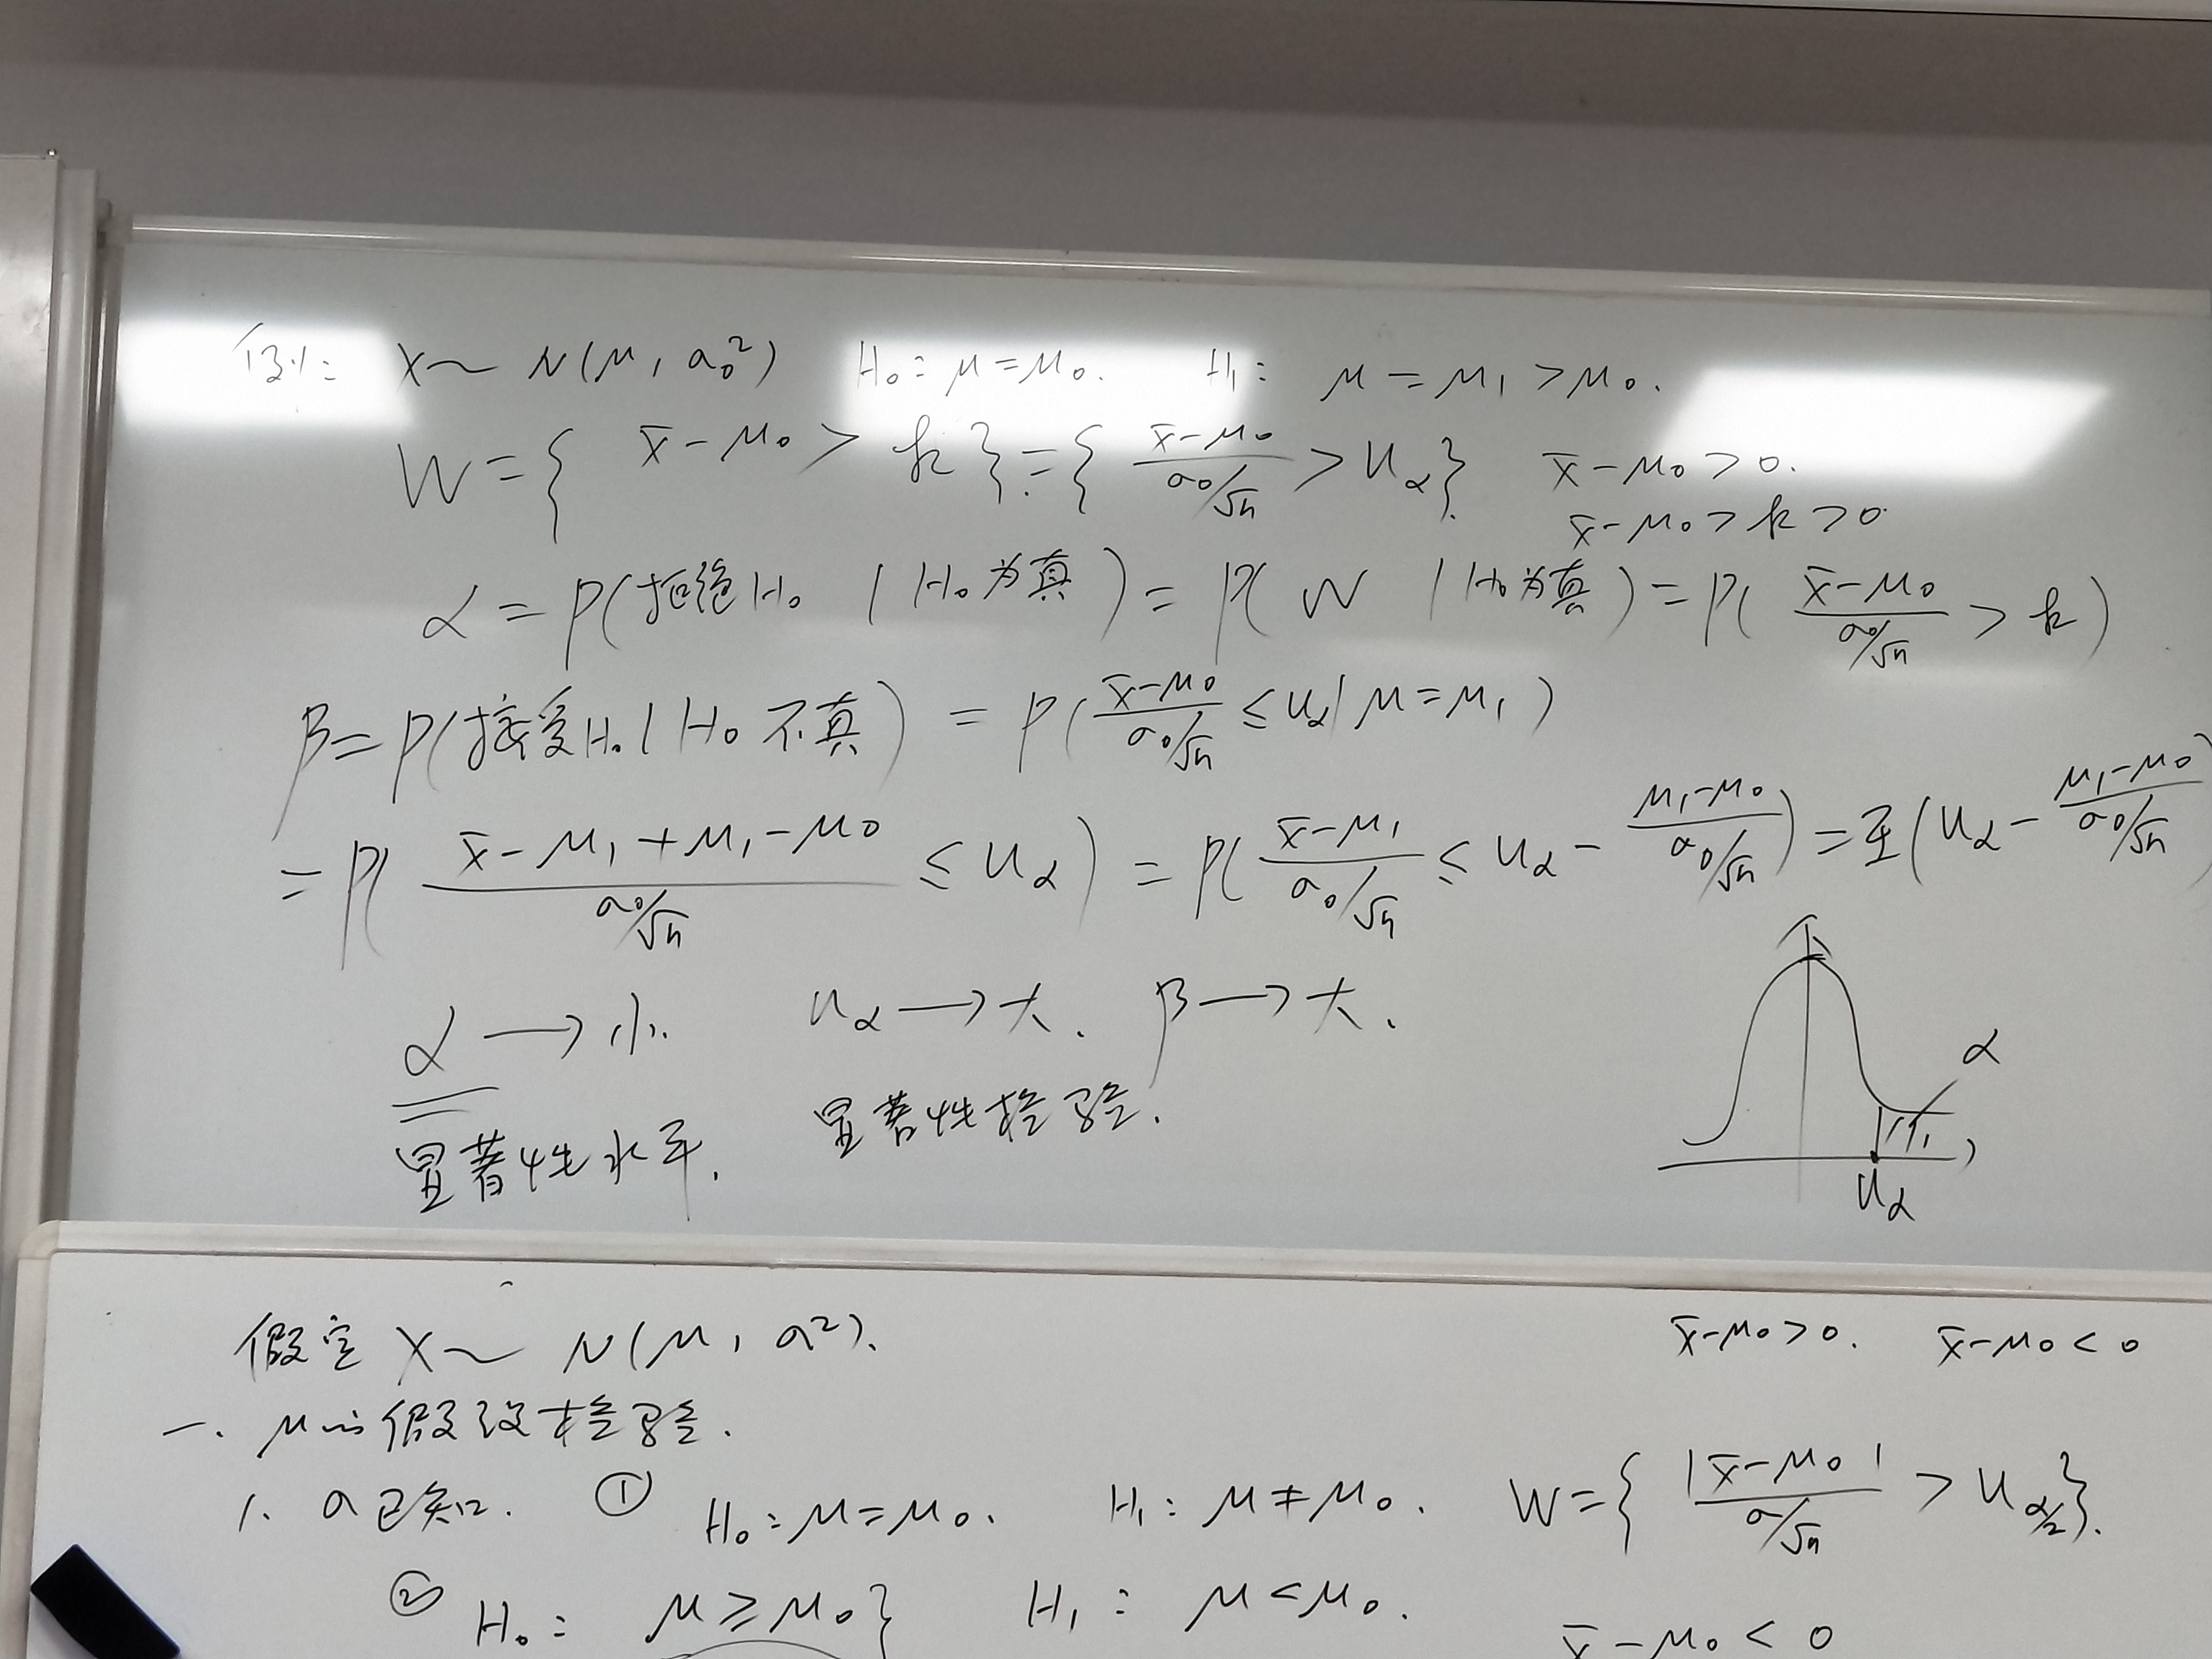 例: X~N(μ, σ₀²) H₀: μ=μ₀. H₁: μ=μ₁>μ₀.
W={ x̄-μ₀ > k }={ (x̄-μ₀)/(σ₀/√n) > u_α } x̄-μ₀>0.
x̄-μ₀>k>0
α=P(拒绝H₀ | H₀为真)=P(W | H₀为真)=P( (x̄-μ₀)/(σ₀/√n) > k )
β=P(接受H₀ | H₀不真)=P( (x̄-μ₀)/(σ₀/√n) ≤ u_α | μ=μ₁ )
=P( (x̄-μ₁+μ₁-μ₀)/(σ₀/√n) ≤ u_α )=P( (x̄-μ₁)/(σ₀/√n) ≤ u_α - (μ₁-μ₀)/(σ₀/√n) )=Φ( u_α - (μ₁-μ₀)/(σ₀/√n) )
α→小. u_α→大. β→大.
α
显著性水平. 显著性检验.
u_α
假定 X~N(μ, σ²). x̄-μ₀>0. x̄-μ₀<0
一. μ的假设检验.
1. σ已知. ① H₀: μ=μ₀. H₁: μ≠μ₀. W={ |x̄-μ₀|/(σ/√n) > u_{α/2} }.
② H₀: μ≥μ₀} H₁: μ<μ₀.
x̄-μ₀<0